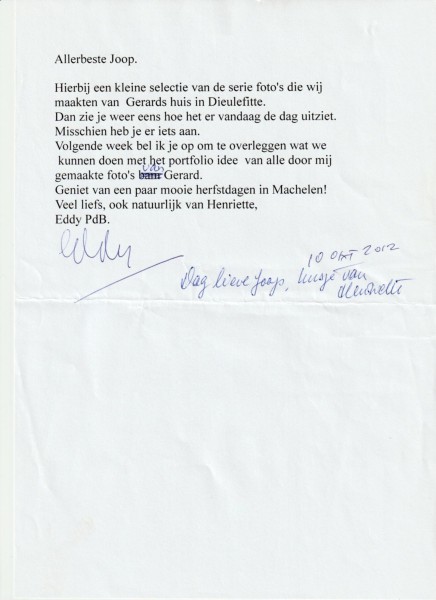 Allerbeste Joop.
Hierbij een kleine selectie van de serie foto's die wij
maakten van Gerards huis in Dieulefitte.
Dan zie je weer eens hoe het er vandaag de dag uitziet.
Misschien heb je er iets aan.
Volgende week bel ik je op om te overleggen wat we
kunnen doen met het portfolio idee van alle door mij
van
gemaakte foto's Gerard.
Geniet van een paar mooie herfstdagen in Machelen!
Veel liefs, ook natuurlijk van Henriette,
Eddy PdB.
Eddy
10 Okt 2012
Dag lieve Joop, kusje van
Henriette